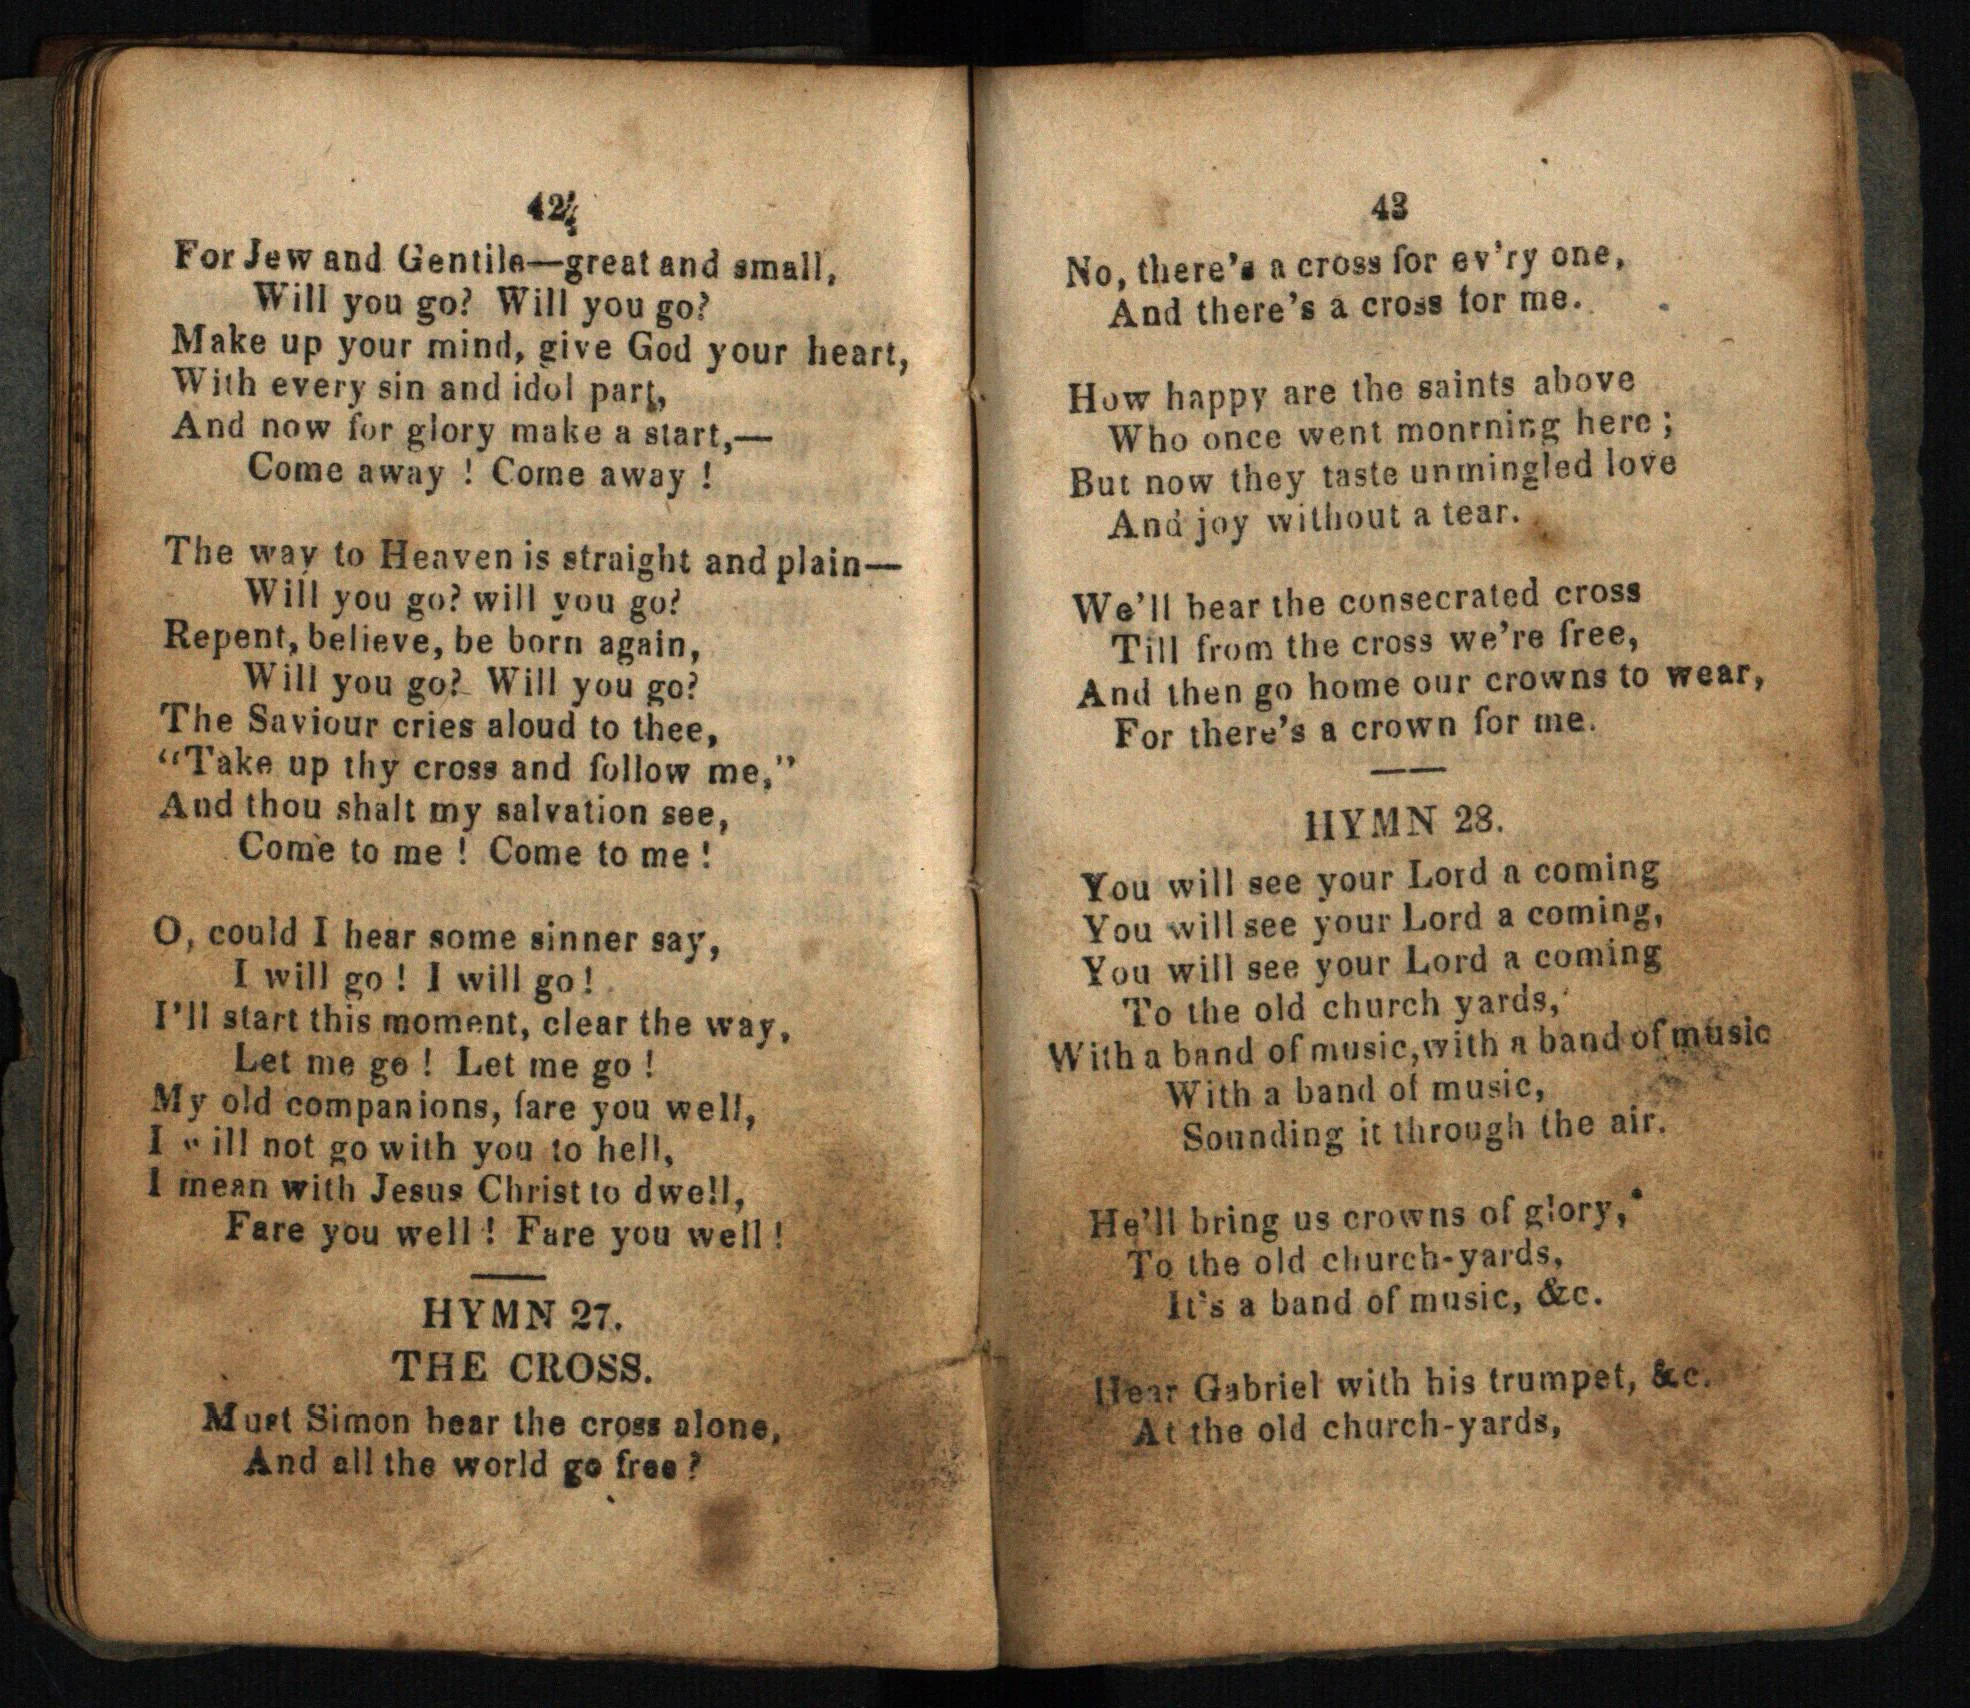 42
For Jew and Gentile—great and small,
Will you go? Will you go?
Make up your mind, give God your heart,
With every sin and idol part,
And now for glory make a start,—
Come away ! Come away !
The way to Heaven is straight and plain—
Will you go? will you go?
Repent, believe, be born again,
Will you go? Will you go?
The Saviour cries aloud to thee,
“Take up thy cross and follow me,”
And thou shalt my salvation see,
Come to me ! Come to me !
O, could I hear some sinner say,
I will go ! I will go !
I’ll start this moment, clear the way,
Let me go ! Let me go !
My old companions, fare you well,
I will not go with you to hell,
I mean with Jesus Christ to dwell,
Fare you well ! Fare you well !
HYMN 27.
THE CROSS.
Must Simon bear the cross alone,
And all the world go free ?
43
No, there’s a cross for ev’ry one,
And there’s a cross for me.
How happy are the saints above
Who once went monrning here ;
But now they taste unmingled love
And joy without a tear.
We’ll bear the consecrated cross
Till from the cross we’re free,
And then go home our crowns to wear,
For there’s a crown for me.
HYMN 28.
You will see your Lord a coming
You will see your Lord a coming,
You will see your Lord a coming
To the old church yards,
With a band of music, with a band of music
With a band of music,
Sounding it through the air.
He’ll bring us crowns of glory,
To the old church-yards,
It’s a band of music, &c.
Hear Gabriel with his trumpet, &c.
At the old church-yards,